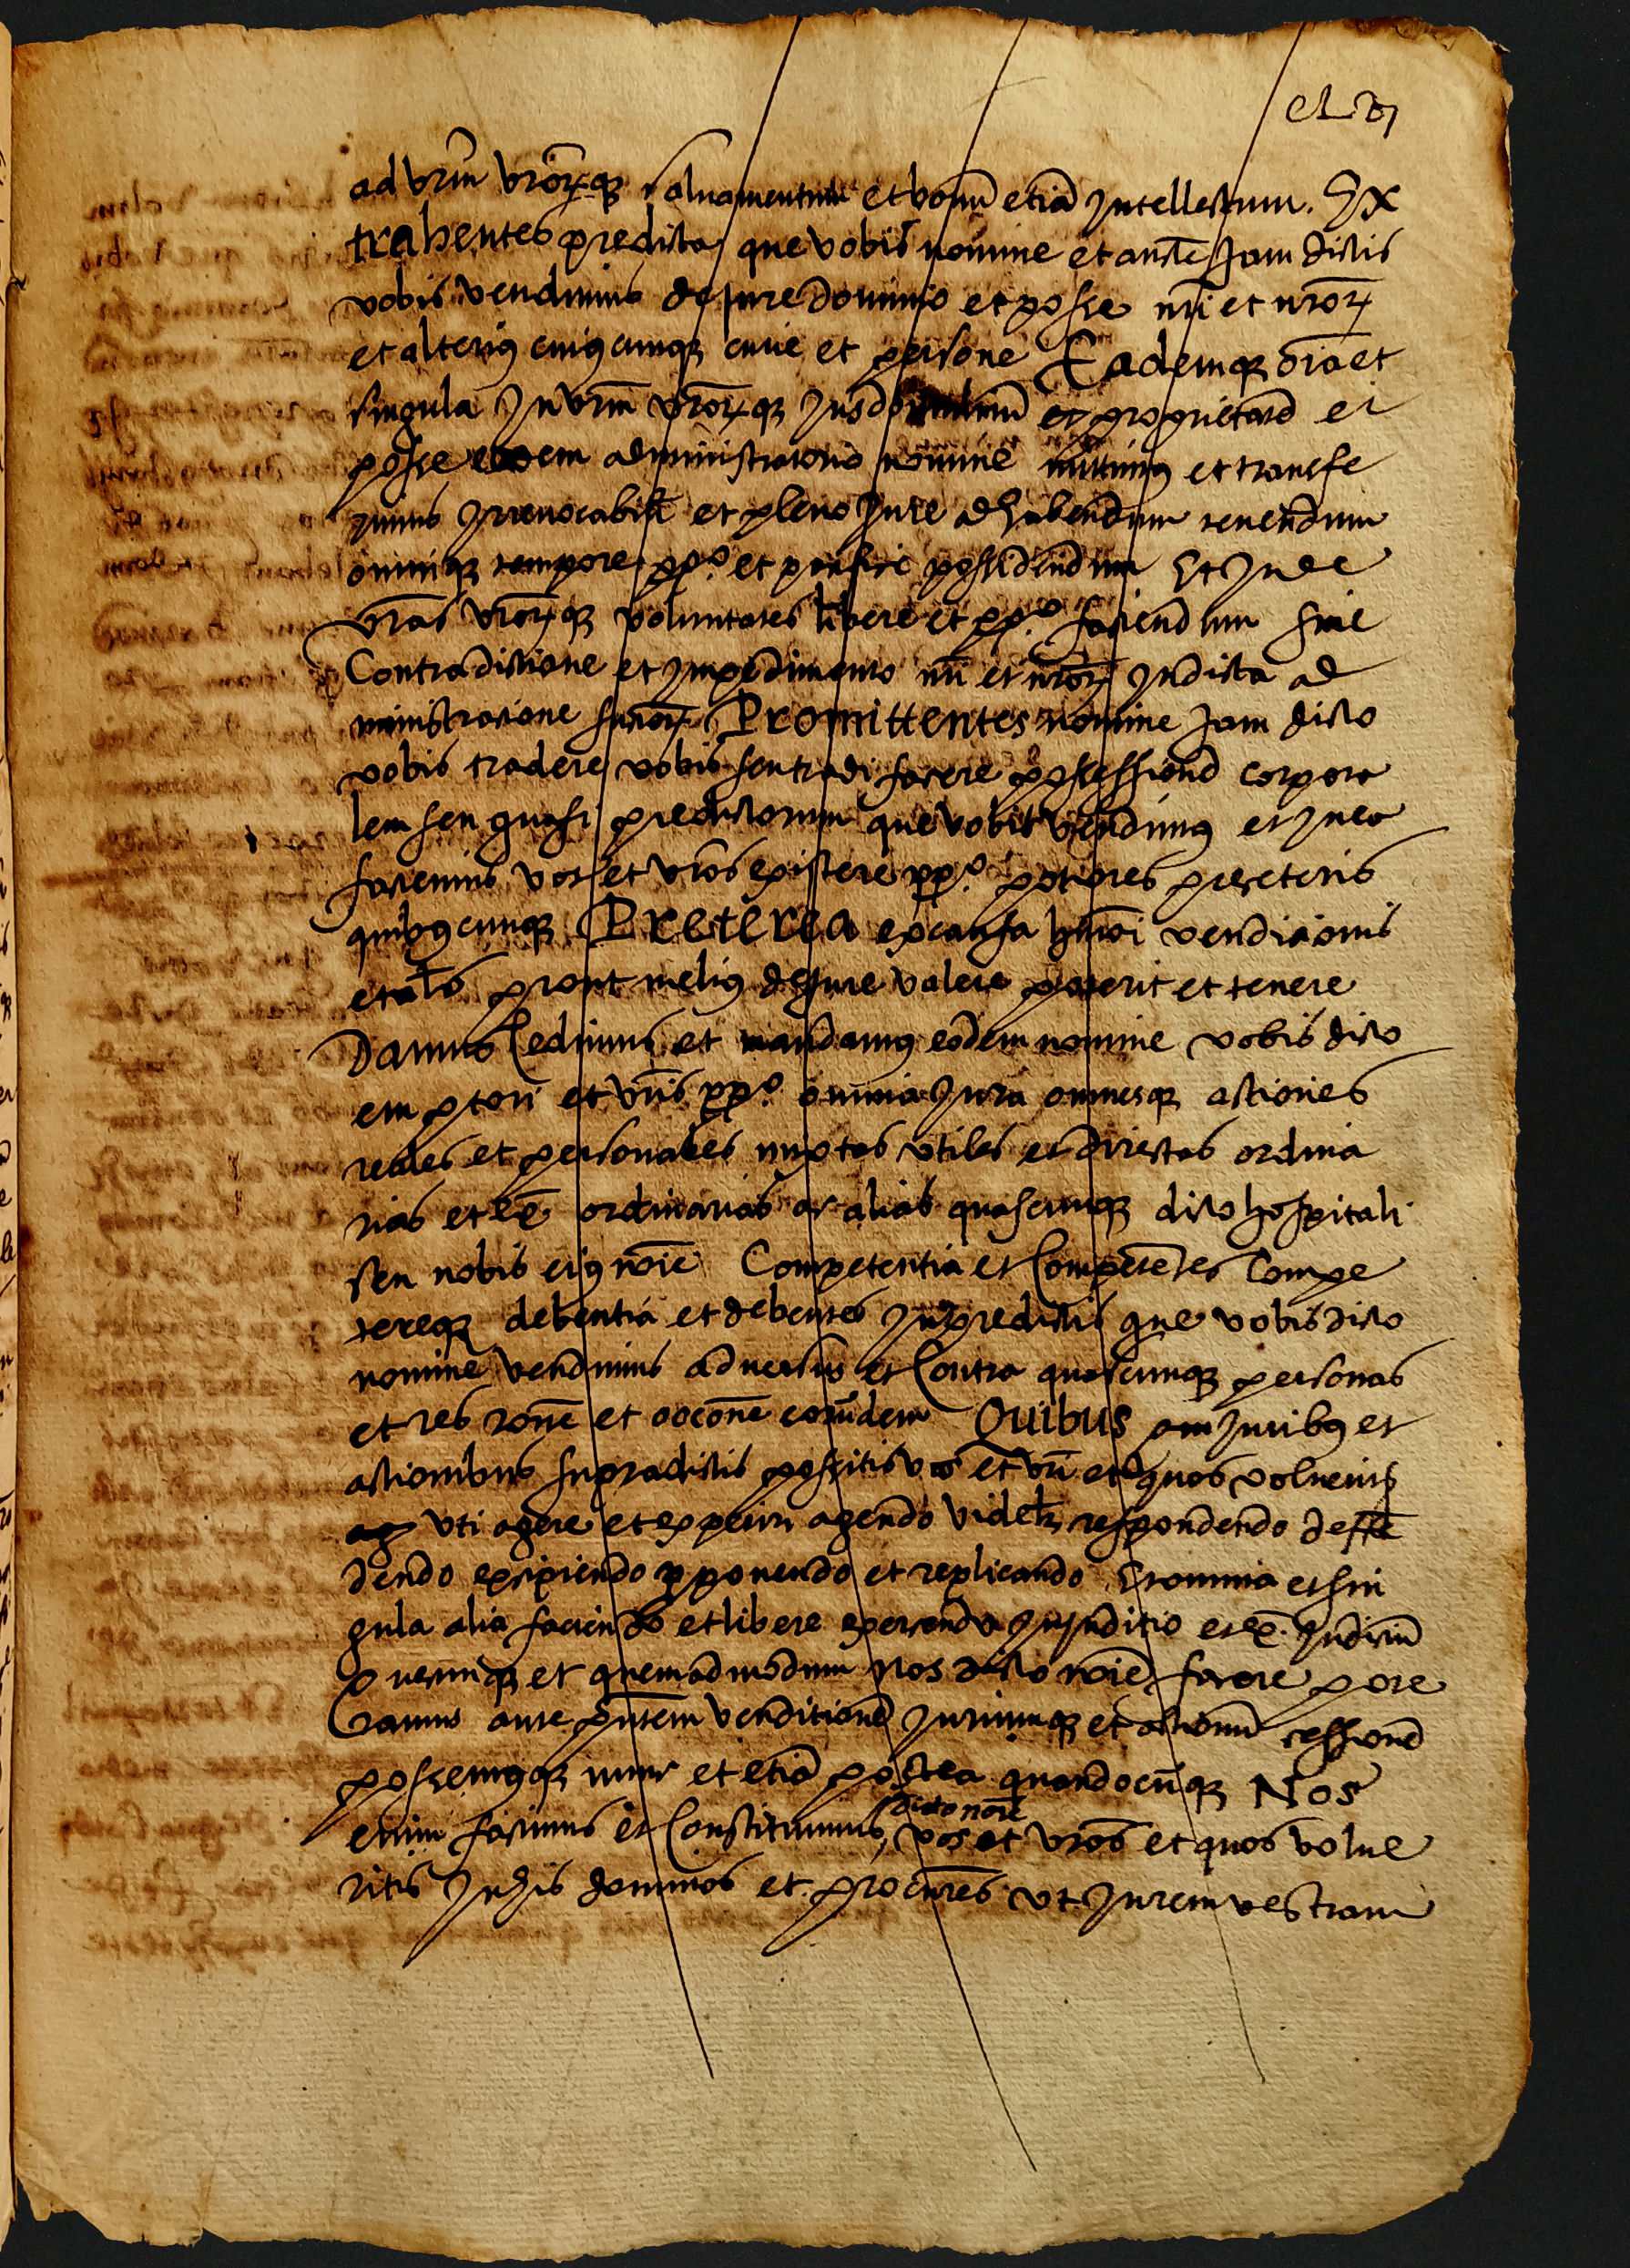 ad vrm̄ vror̄ꝝq₃ saluamentum et bonū etiā Intellectum. Ex
trahentes predicta que vobis nomine et aucte Jam dictis
vobis vendimus de Jure dominio et posse nr̄i et nror̄ꝝ
et alteriꝰ cuiꝰcumq₃ curie et persone Eademq₃ oīa et
singula In vrm̄ vror̄ꝝq₃ Jus dominiū et proprietatē et
posse eodem administratorio nomine mittimꝰ et transfe
rimus Irreuocabilr̄ et pleno Jure ad habendum tenendum
omniq₃ tempore ppº. et possidendum Et Inde
vrās vror̄ꝝq₃ voluntates libere et ppº. faciendum sine
Contradictione et Impedimento nr̄i et nror̄ꝝ In dicta ad
ministracione succꝝ Promittentes nomine Jam dicto
vobis tradere vobis seu tradi facere possessionē corpora
lem seu quasi predictorum que vobis vendimꝰ et In ea
faciemus vos et vrōs existere ppº. potiores pre ceteris
quibꝰcumq₃ Preterea ex causa hmōi vendicionis
et als̄ prout meliꝰ de Jure valere poterit et tenere
Damus Cedimus et mandamꝰ eodem nomine vobis dicto
emptori et vrīs ppº. omnia Jura omnesq₃ actiones
reales et personales mixtas vtiles et directas ordina
rias et ex̄ ordinarias ac alias quascumq₃ dicto hospitali
seu nobis eiꝰ noīe Competentia et Competētes Compe
tereq₃ debentia et debentes In predictis que vobis dicto
nomine vendimus aduersus et Contra quascumq₃ personas
et res rone et occōne eorūdem Quibus Juribꝰ et
actionibus supradictis possitis vos et vrī et quos volueritis
vti agere et experiri agendo videl₃ respondendo deffē
dendo excipiendo pponendo et replicando Et omnia et sin
gula alia faciendo et libere exercendo In Juditio et ex̄. Juditiū
quecumq₃ et quemadmodum nos dicto noīe facere pote
ramus ante pn̄tem venditionē Juriumq₃ et actionū cessionē
possemusq₃ nunc et etiā postea quandocūq₃ Nos
enim facimus et Constituimus dicto noīe vos et vrōs et quos volue
ritis In his dominos et procures vt In rem vestram